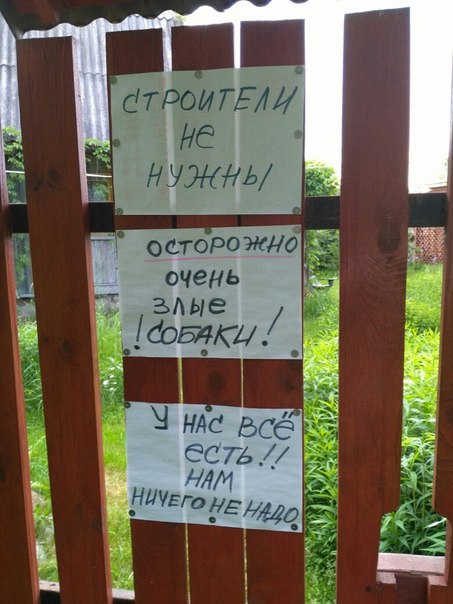 СТРОИТЕЛИ
НЕ
НУЖНЫ
ОСТОРОЖНО
ОЧЕНЬ
ЗЛЫЕ
!СОБАКИ!
У НАС ВСЁ
ЕСТЬ!!
НАМ
НИЧЕГО НЕ НАДО